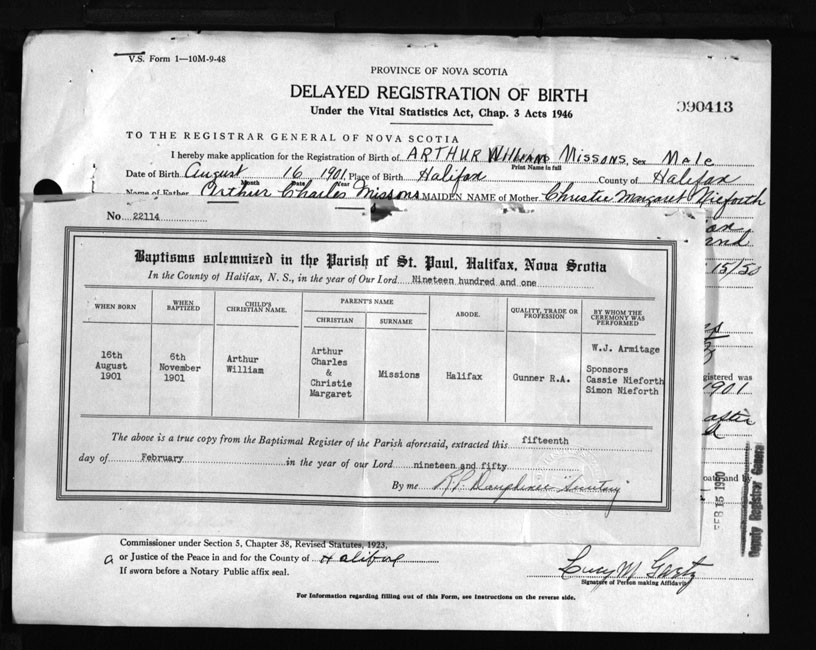 V.S. Form 1—10M-9-48
PROVINCE OF NOVA SCOTIA
DELAYED REGISTRATION OF BIRTH
Under the Vital Statistics Act, Chap. 3 Acts 1946
090413
TO THE REGISTRAR GENERAL OF NOVA SCOTIA
I hereby make application for the Registration of Birth of ARTHUR WILLIAM MISSONS, Sex Male
Print Name in full
Date of Birth August 16 1901 Place of Birth Halifax County of Halifax
Month Date Year
Name of Father Arthur Charles Missons MAIDEN NAME of Mother Christie Margaret Nieforth
No. 22114
Baptisms solemnized in the Parish of St. Paul, Halifax, Nova Scotia
In the County of Halifax, N. S., in the year of Our Lord Nineteen hundred and one
15/50
WHEN BORN
WHEN BAPTIZED
CHILD'S CHRISTIAN NAME.
PARENT'S NAME
CHRISTIAN
SURNAME
ABODE.
QUALITY, TRADE OR PROFESSION
BY WHOM THE CEREMONY WAS PERFORMED
16th August 1901
6th November 1901
Arthur William
Arthur Charles & Christie Margaret
Missions
Halifax
Gunner R.A.
W.J. Armitage
Sponsors
Cassie Nieforth
Simon Nieforth
gistered was
1901
after
The above is a true copy from the Baptismal Register of the Parish aforesaid, extracted this fifteenth
day of February in the year of our Lord nineteen and fifty
By me
FEB 15 1950
County Registrar General
Commissioner under Section 5, Chapter 38, Revised Statutes, 1923,
a or Justice of the Peace in and for the County of Halifax
If sworn before a Notary Public affix seal.
Lucy M
Signature of Person making Affidavit
For Information regarding filling out of this Form, see Instructions on the reverse side.